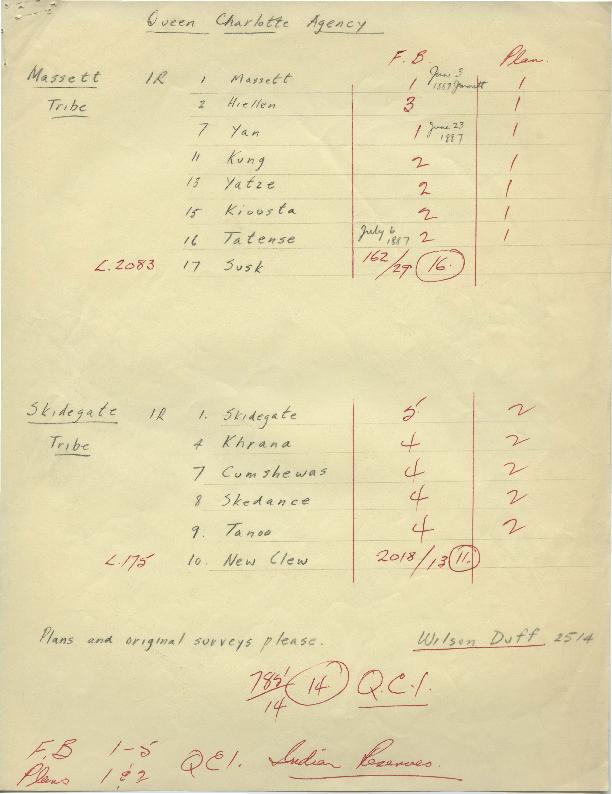 Queen Charlotte Agency
F.B. Plan.
Massett IR 1 Massett 1 June 3 1887 1
Tribe 2 Hiellen 3 1
7 Yan 1 June 23 1887 1
11 Kung 2 1
13 Yatze 2 1
15 Kioosta 2 1
16 Tatense July 6 1887 2 1
L.2083 17 Susk 162/29 16.
Skidegate IR 1. Skidegate 5 2
Tribe 4 Khrana 4 2
7 Cumshewas 4 2
8 Skedance 4 2
9. Tanoo 4 2
L.175 10. New Clew 2018/13 11.
Plans and original surveys please. Wilson Duff 2514
785/14 14 Q.C.I.
F.B 1-5 QCI. Indian Reserves.
Plans 1 & 2